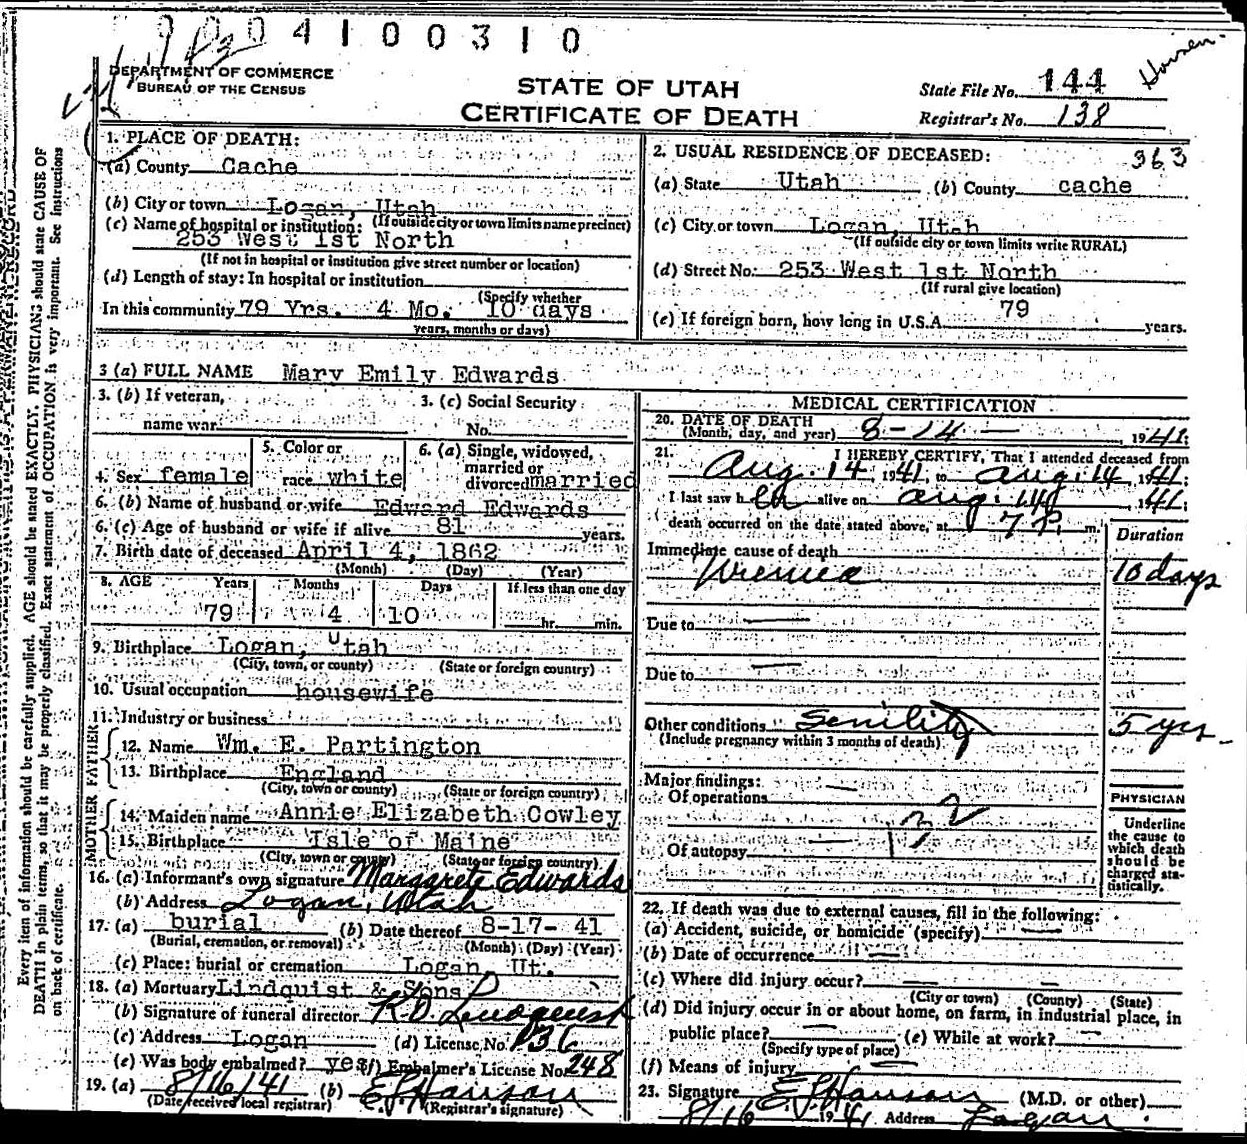 0004100310
DEPARTMENT OF COMMERCE
BUREAU OF THE CENSUS
STATE OF UTAH
CERTIFICATE OF DEATH
State File No. 144
Registrar's No. 138
1. PLACE OF DEATH:
(a) County Cache
(b) City or town Logan, Utah
(c) Name of hospital or institution: (If outside city or town limits name precinct)
253 West 1st North
(If not in hospital or institution give street number or location)
(d) Length of stay: In hospital or institution
(Specify whether
In this community 79 Yrs. 4 Mo. 10 days
years, months or days)
2. USUAL RESIDENCE OF DECEASED: 363
(a) State Utah (b) County cache
(c) City or town Logan, Utah
(If outside city or town limits write RURAL)
(d) Street No. 253 West 1st North
(If rural give location)
(e) If foreign born, how long in U.S.A. 79 years.
3 (a) FULL NAME Mary Emily Edwards
3. (b) If veteran, 3. (c) Social Security
name war No.
4. Sex female 5. Color or race white 6. (a) Single, widowed, married or divorced married
6. (b) Name of husband or wife Edward Edwards
6. (c) Age of husband or wife if alive 81 years.
7. Birth date of deceased April 4, 1862
(Month) (Day) (Year)
8. AGE Years Months Days If less than one day
79 4 10 hr. min.
9. Birthplace Logan, Utah
(City, town, or county) (State or foreign country)
10. Usual occupation housewife
11. Industry or business
FATHER
12. Name Wm. E. Partington
13. Birthplace England
(City, town or county) (State or foreign country)
MOTHER
14. Maiden name Annie Elizabeth Cowley
15. Birthplace Isle of Maine
(City, town or county) (State or foreign country)
16. (a) Informant's own signature Margarete Edwards
(b) Address Logan, Utah
17. (a) burial (b) Date thereof 8-17-41
(Burial, cremation, or removal) (Month) (Day) (Year)
(c) Place: burial or cremation Logan, Ut.
18. (a) Mortuary Lindquist & Sons
(b) Signature of funeral director K.D. Lindquist
(c) Address Logan (d) License No. P36
(e) Was body embalmed? yes (f) Embalmer's License No. 248
19. (a) 8/16/41 (b) E.L. Hanson
(Date received local registrar) (Registrar's signature)
MEDICAL CERTIFICATION
20. DATE OF DEATH
(Month, day, and year) 8-14- , 1941.
21. I HEREBY CERTIFY, That I attended deceased from
Aug. 14 1941, to Aug. 14, 1941;
I last saw her alive on Aug. 14, 1941;
death occurred on the date stated above, at 7 P. m.
Duration
Immediate cause of death
Uremia 10 days
Due to
Due to
Other conditions Senility 5 yrs.
(Include pregnancy within 3 months of death)
Major findings:
Of operations
132
Of autopsy
PHYSICIAN
Underline
the cause to
which death
should be
charged sta-
tistically.
22. If death was due to external causes, fill in the following:
(a) Accident, suicide, or homicide (specify)
(b) Date of occurrence
(c) Where did injury occur?
(City or town) (County) (State)
(d) Did injury occur in or about home, on farm, in industrial place, in
public place? (e) While at work?
(Specify type of place)
(f) Means of injury
23. Signature E.L. Hanson (M.D. or other)
8/16 1941 Address Logan
Every item of information should be carefully supplied. AGE should be stated EXACTLY. PHYSICIANS should state CAUSE OF
DEATH in plain terms, so that it may be properly classified. Exact statement of OCCUPATION is very important. See instructions
on back of certificate.